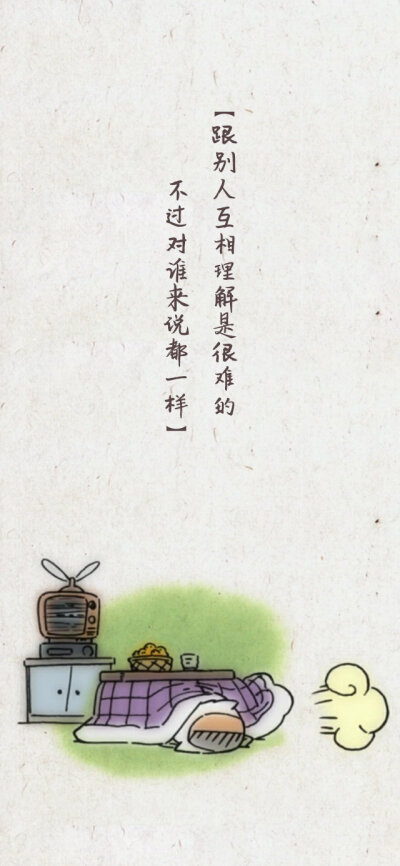 【跟别人互相理解是很难的
不过对谁来说都一样】